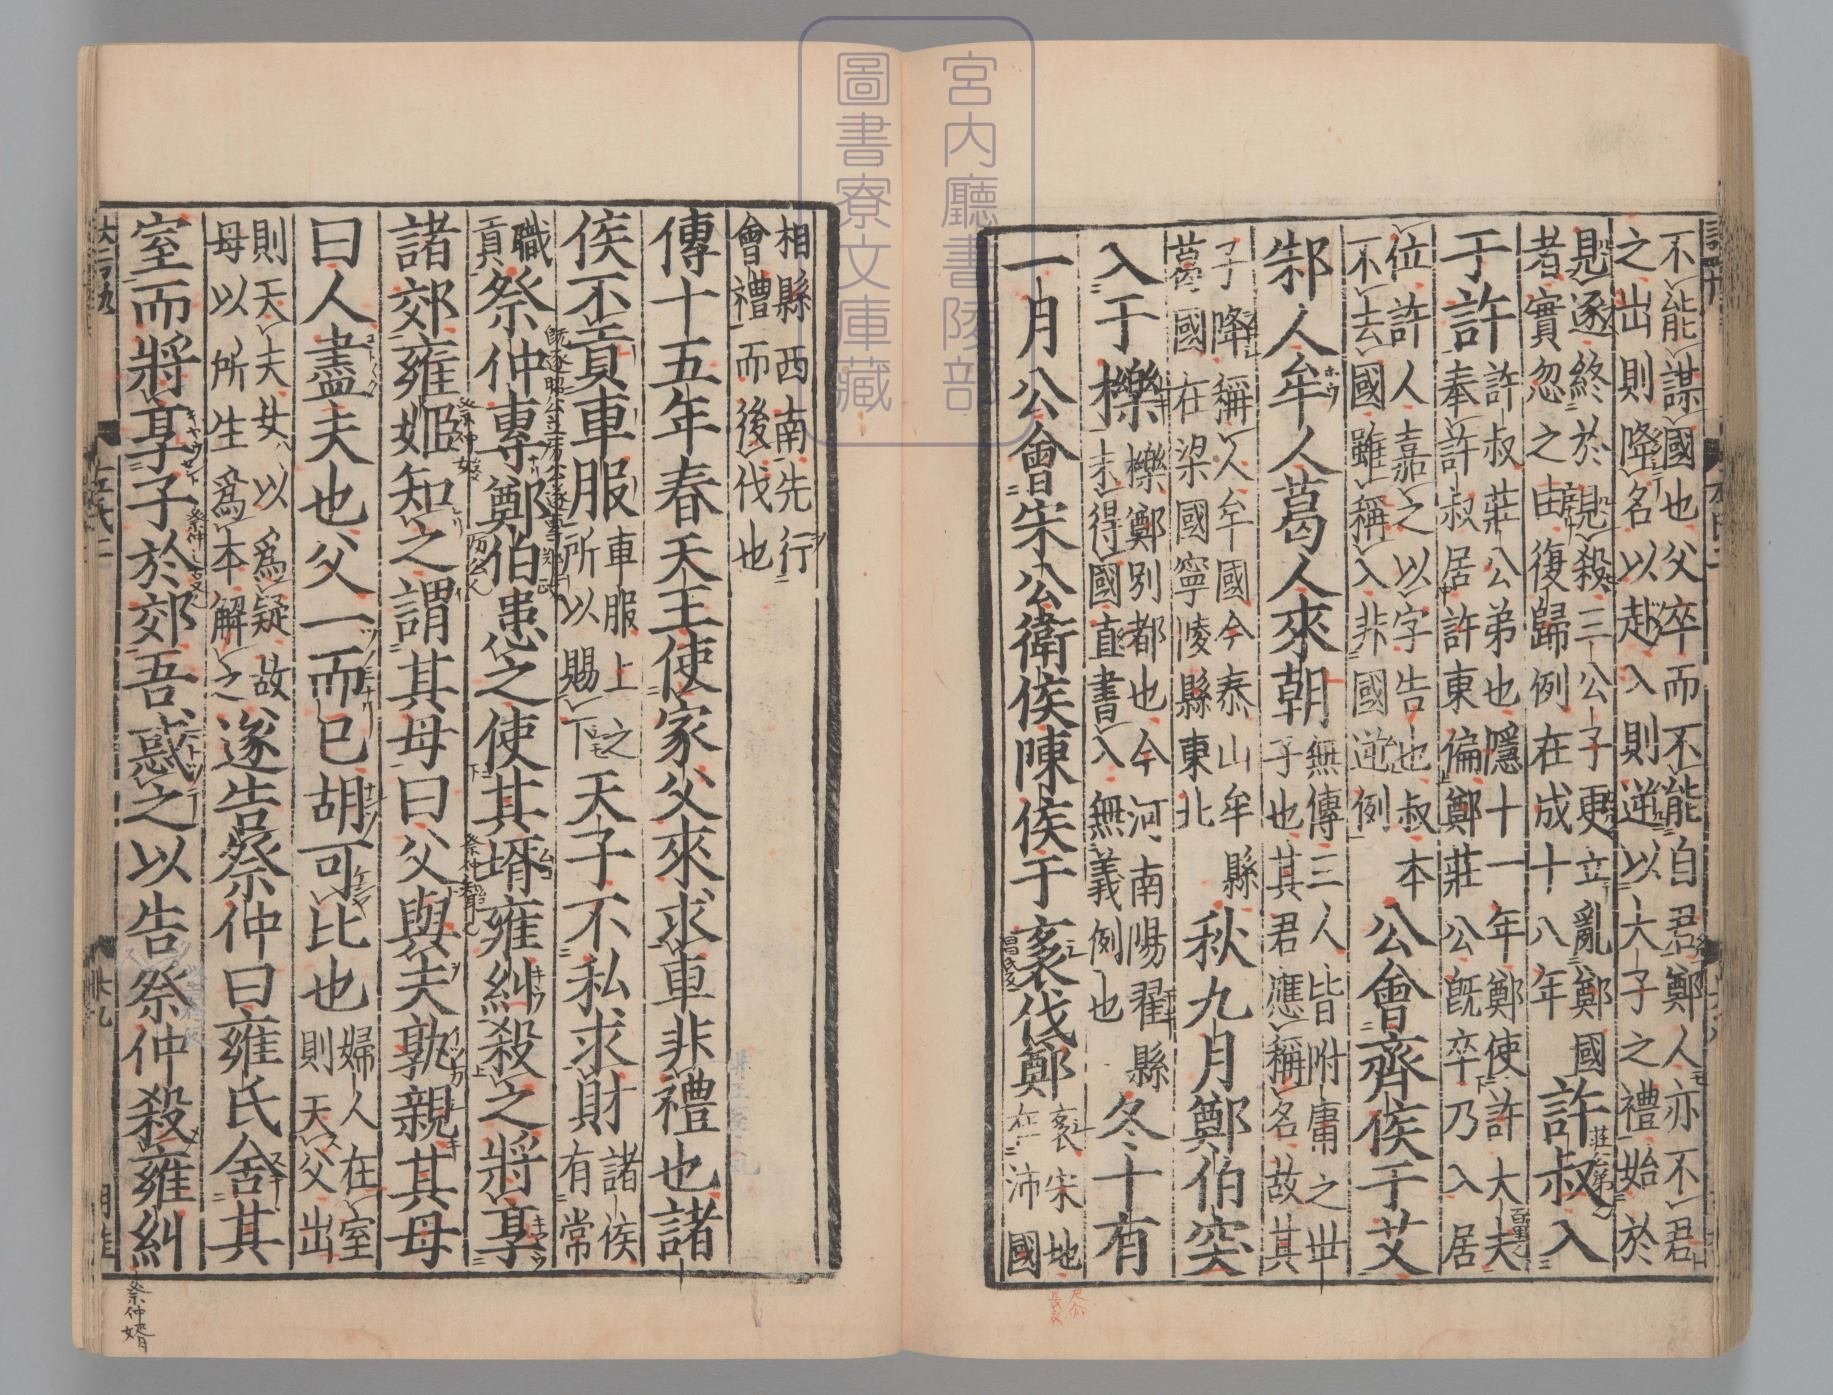 不能謀國也父卒而不能自君鄭人亦不君
之出則降名以赴入則逆以大子之禮始於
見逐終於見殺三公子更立亂鄭國
者實忽之由復歸例在成十八年
許叔入
于許
許叔莊公弟也隱十一年鄭使許大夫
奉許叔居許東偏鄭莊公既卒乃入居
位許人嘉之以字告也叔本
不去國雖稱入非國逆例
公會齊侯于艾
邾人牟人葛人來朝
無傳三人皆附庸之世
子也其君應稱名故其
子降稱人牟國今泰山牟縣
葛國在梁國寧陵縣東北
秋九月鄭伯突
入于櫟
櫟鄭別都也今河南陽翟縣
未得國直書入無義例也
冬十有
一月公會宋公衛侯陳侯于袲伐鄭
袲宋地
在沛國
相縣西南先行
會禮而後伐也
傳十五年春天王使家父來求車非禮也諸
侯不貢車服
車服上之
所以賜下
天子不私求財
諸侯
有常
職
貢
祭仲專鄭伯患之使其壻雍糾殺之將享
諸郊雍姬知之謂其母曰父與夫孰親其母
曰人盡夫也父一而已胡可比也
婦人在室
則天父出
則天夫女以為疑故
母以所生為本解之
遂告祭仲曰雍氏舍其
室而將享子於郊吾惑之以告祭仲殺雍糾
祭仲婿
宮内廳書陵部
圖書寮文庫藏